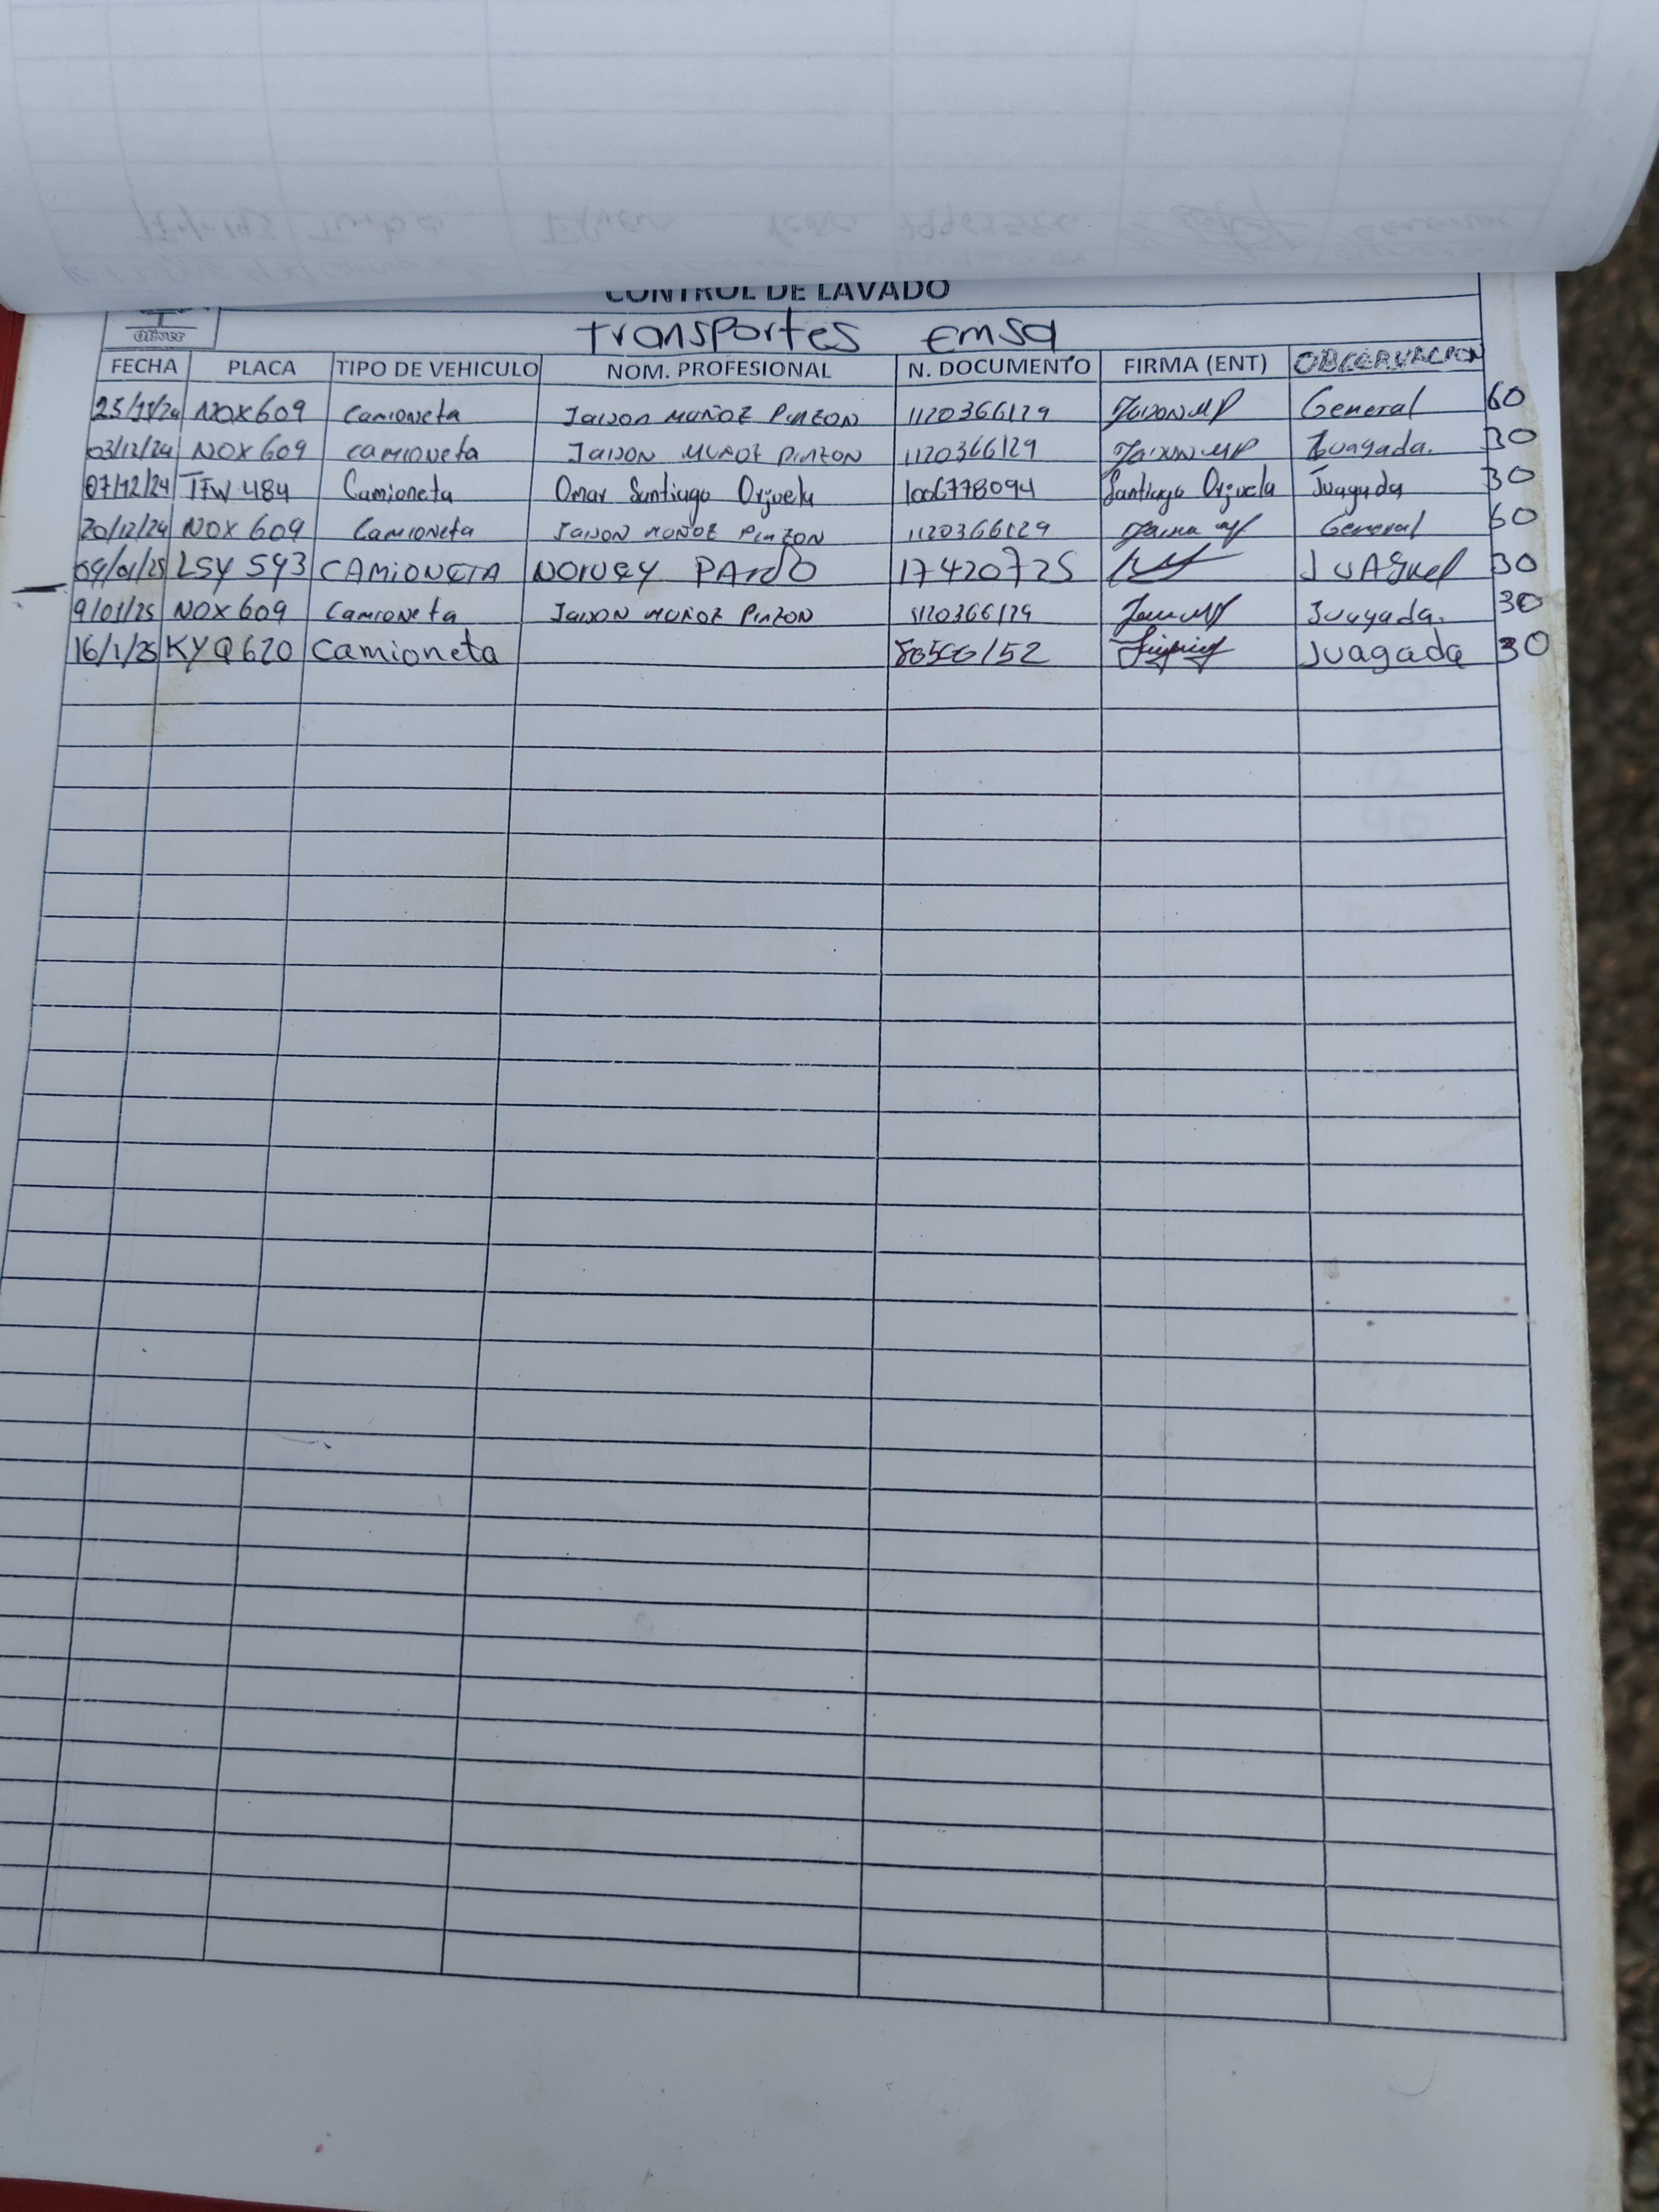 CONTROL DE LAVADO
Oliver
transportes emsa
FECHA PLACA TIPO DE VEHICULO NOM. PROFESIONAL N. DOCUMENTO FIRMA (ENT) OBSERVACION
25/11/24 NOX609 Camioneta Jaison MUÑOZ PINZON 1120366129 General 60
03/12/24 NOX609 camioneta JAISON MUÑOZ PINZON 1120366129 Juagada. 30
07/12/24 TFW 484 Camioneta Omar Santiago Orjuela 1006778094 Santiago Orjuela Juagada 30
20/12/24 NOX 609 Camioneta JAISON MUÑOZ PINZON 1120366129 General 60
09/01/25 LSY 593 CAMIONETA NORVEY PARDO 17420725 JUAGUE 30
9/01/25 NOX 609 Camioneta JAISON MUÑOZ PINZON 1120366129 Juagada. 30
16/1/25 KYQ620 Camioneta 80500152 Juagada 30